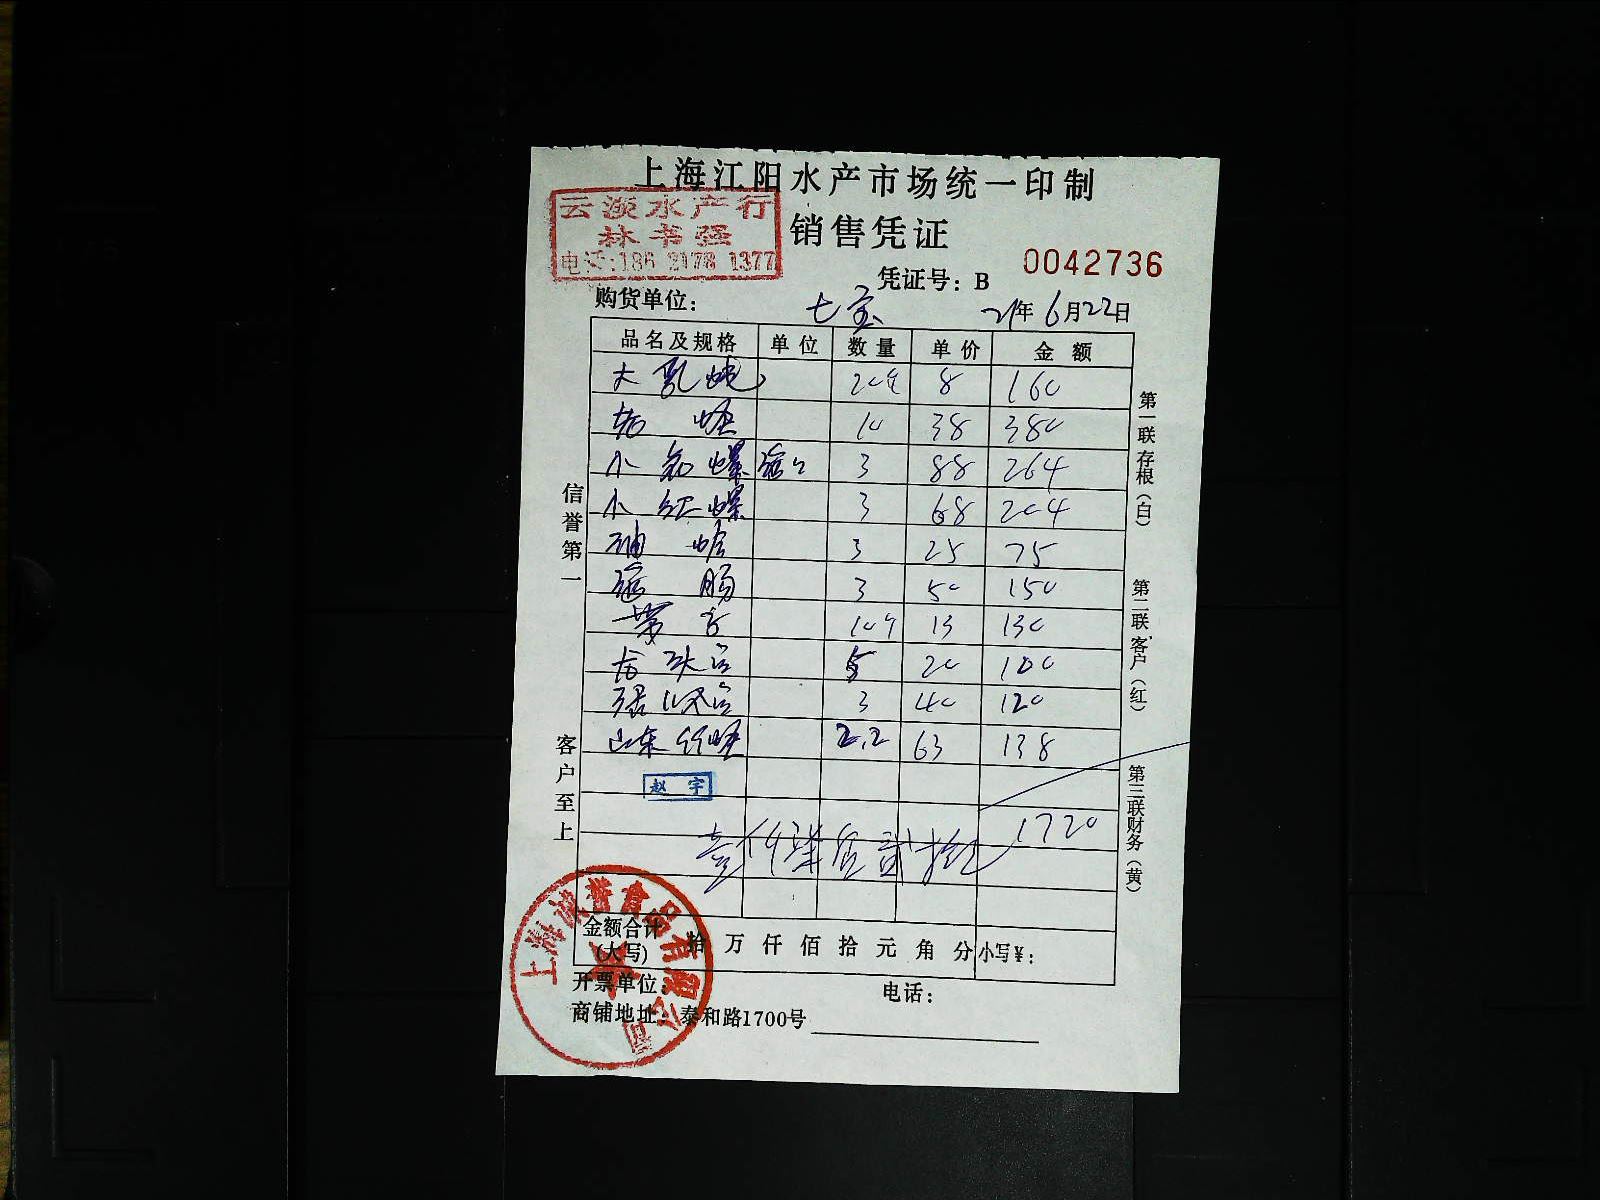 上海江阳水产市场统一印制
云淡水产行
林书强
电话:186 2178 1377
销售凭证
凭证号：B 0042736
购货单位： 七宝 21年6月22日
品名及规格 单位 数量 单价 金额
大 8 160
10 38 380
小 螺 3 88 264
小红螺 3 68 204
油蛤 3 25 75
肠 3 50 150
带子 13 130
龙头 5 20 100
3 40 120
山东竹蛏 2.2 63 138
赵宇
1720
壹仟柒佰贰拾元
金额合计(大写) 拾万仟佰拾元角分 小写￥：
开票单位： 电话：
商铺地址：泰和路1700号
信誉第一
客户至上
第一联存根（白）
第二联客户（红）
第三联财务（黄）
上海诚誉食品有限公司